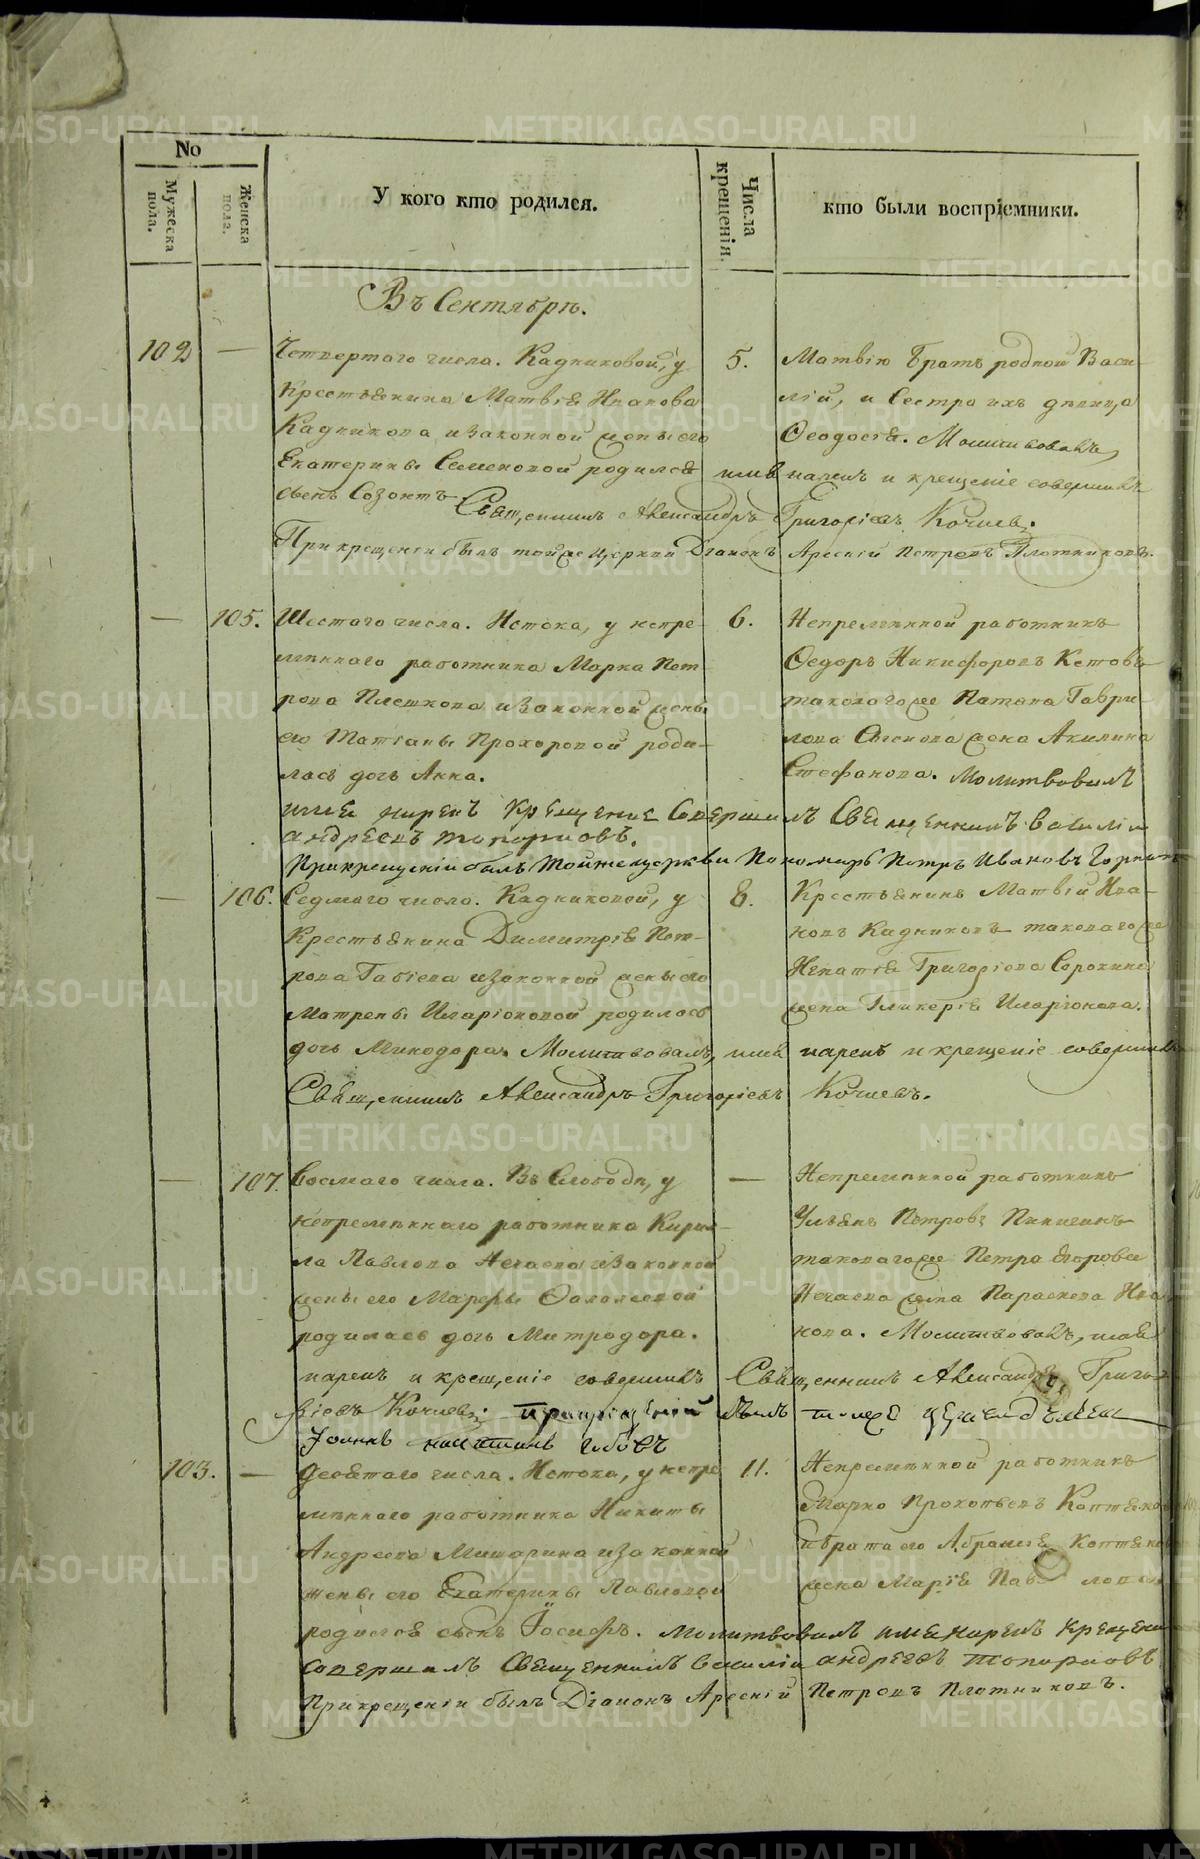 No
Мужеска пола.
Женска пола.
У кого кто родился.
Числа крещенія.
кто были воспріемники.
Въ Сентябрѣ.
102 — Четвертаго числа. Кадниковой, у 5. Матвѣю братъ родной Васи-
Крестьянина Матвѣя Иванова лій, и Сестра ихъ дѣвица
Кадникова и законной жены его Ѳеодосія. Молитвовалъ,
Екатерины Семеновой родился имя нарекъ и крещеніе совершилъ
сынъ Созонтъ Священникъ Александръ Григоріевъ Кочневъ.
При крещеніи былъ тойже церкви Діаконъ Арсеній Петровъ Плотниковъ.
— 105. Шестаго числа. Истока, у непре- 6. Непремѣнной работникъ
мѣннаго работника Марка Пет- Ѳедоръ Никифоровъ Кетовъ
рова Плешкова и законной жены таковагоже Патапа Гаври-
его Татіаны Прохоровой роди- лова жена Акилина
лась дочь Анна. Стефанова. Молитвовалъ
имя нарекъ крещение совершилъ Священникъ Василій
Андреевъ Топорковъ.
При крещеніи былъ тойже церкви Пономарь Петръ Ивановъ
— 106. Седмаго числа. Кадниковой, у 8. Крестьянинъ Матвій Ива-
Крестьянина Димитрія Пет- новъ Кадниковъ таковагоже
рова Габіева и законной жены его Игнатія Григоріева Сорокина
Матрены Иларіоновой родилась жена Гликерія Иларіонова.
дочь Минодора. Молитвовалъ, имя нарекъ и крещеніе совершилъ
Священникъ Александръ Григоріевъ Кочневъ.
— 107. Восмаго числа. Въ Слободѣ, у — Непремѣнной работникъ
непремѣннаго работника Кирил- Ульянъ Петровъ
ла Павлова Нечаева и законной таковагоже Петра Егорова
жены его Марѳы родилась дочь Митродора. Нечаева жена Параскева Ива-
нова. Молитвовалъ, имя
нарекъ и крещеніе совершилъ Священникъ Александръ Григо-
ріевъ Кочневъ. При крещеніи былъ тойже церкви
Іоаннъ
103. — Девятаго числа. Истока, у непре- 11. Непремѣнной работникъ
мѣннаго работника Никиты Марко Прокопьевъ Коптяковъ
Андреева Мишарина и законной и брата его Абрамія Коптякова
жены его Екатерины Павловой жена Марія Павлова
родился сынъ Іосифъ. Молитвовалъ имя нарекъ крещение
совершилъ Священникъ Василій Андреевъ Топорковъ
При крещеніи былъ Діаконъ Арсеній Петровъ Плотниковъ.